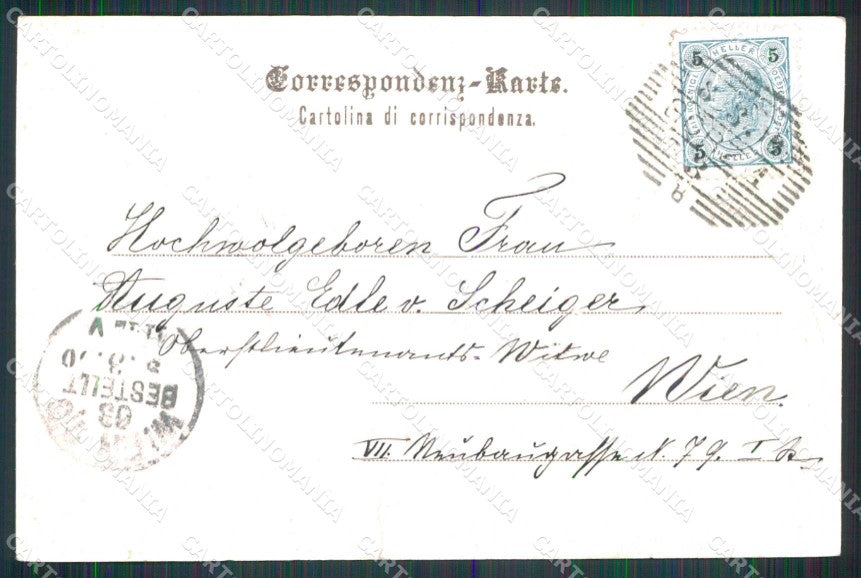 Correspondenz-Karte.
Cartolina di corrispondenza.
5 HELLER 5
5 HELLER 5
Hochwolgeboren Frau
Auguste Edle v. Scheiger
Oberstlieutenants-Witwe
Wien.
VII. Neubaugasse N. 79. I
BESTELLT
CARTOLINOMANIA